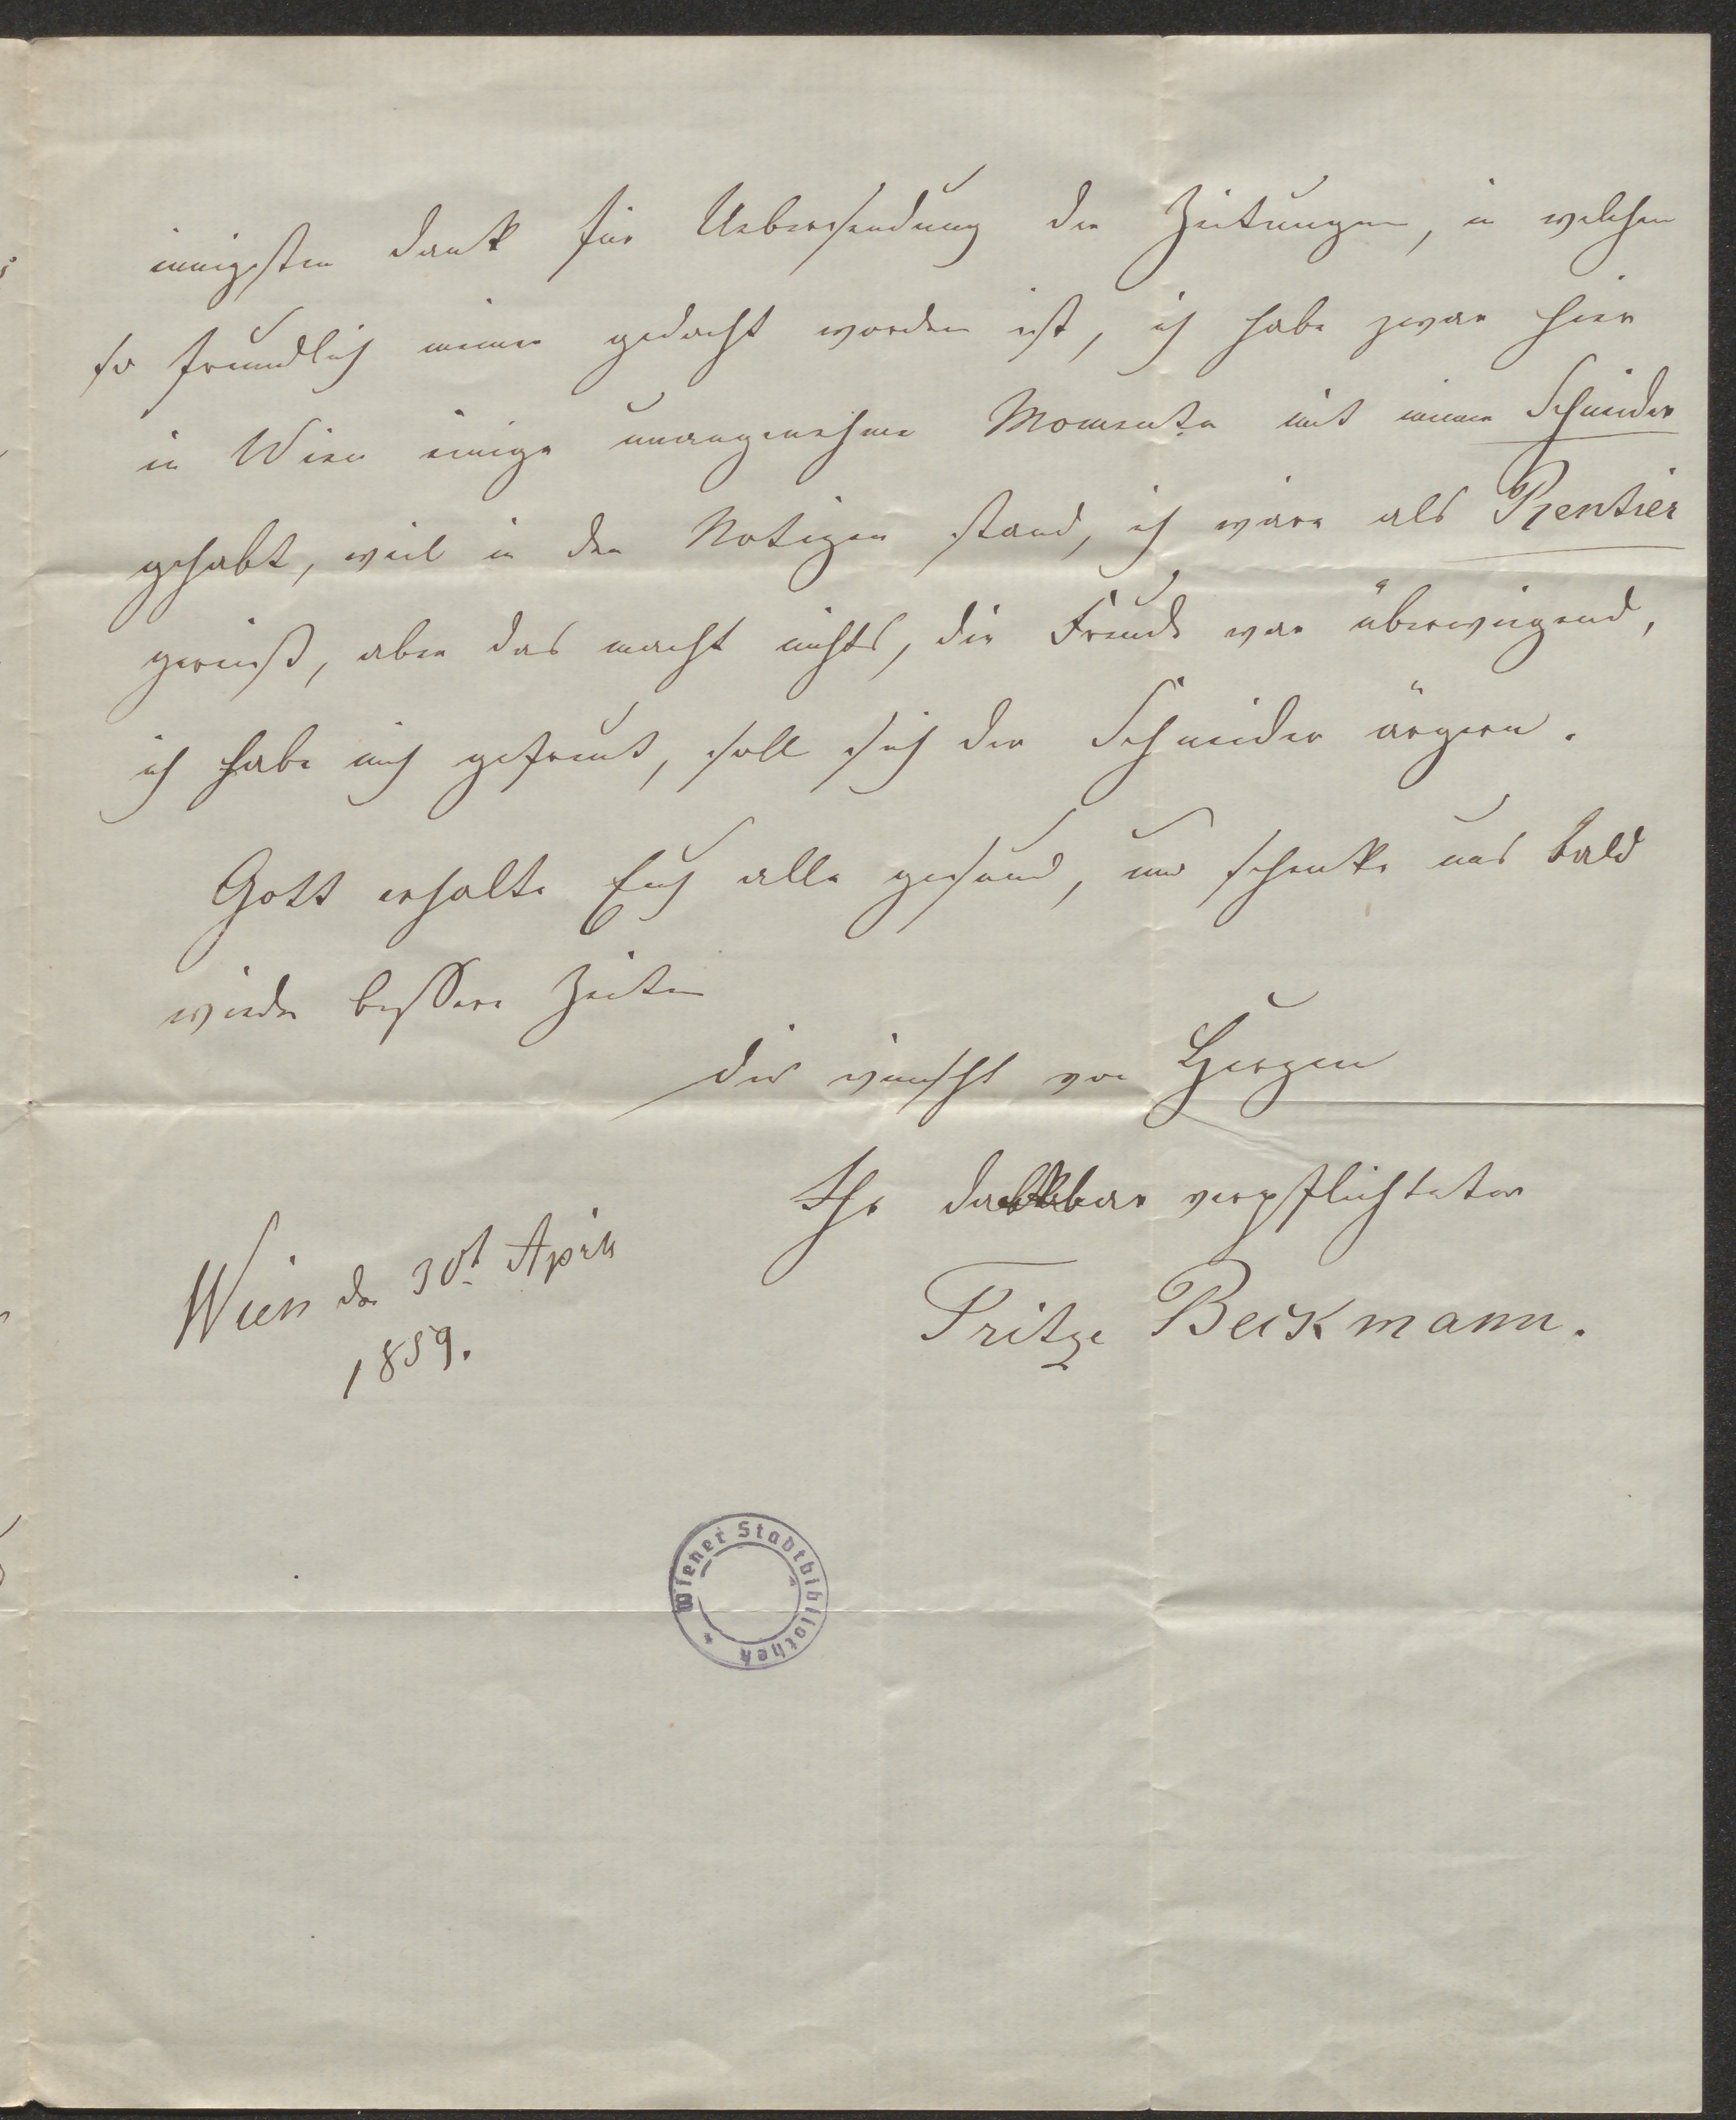 innigsten Dank für Uebersendung der Zeitungen, in welchen
so freundlich meiner gedacht worden ist, ich habe zwar hier
in Wien einige unangenehme Momente mit meinem Schneider
gehabt, weil in den Notizen stand, ich wäre als Rentier
gereist, aber das macht nichts, die Freude war überwiegend,
ich habe mich gefreut, soll sich der Schneider ärgern.
Gott erhalte Euch alle gesund, und schenke uns bald
wieder bessere Zeiten
dies wünscht von Herzen
Ihr dankbar verpflichteter
Fritze Beckmann.
Wien den 30t April
1859.
Wiener Stadtbibliothek *